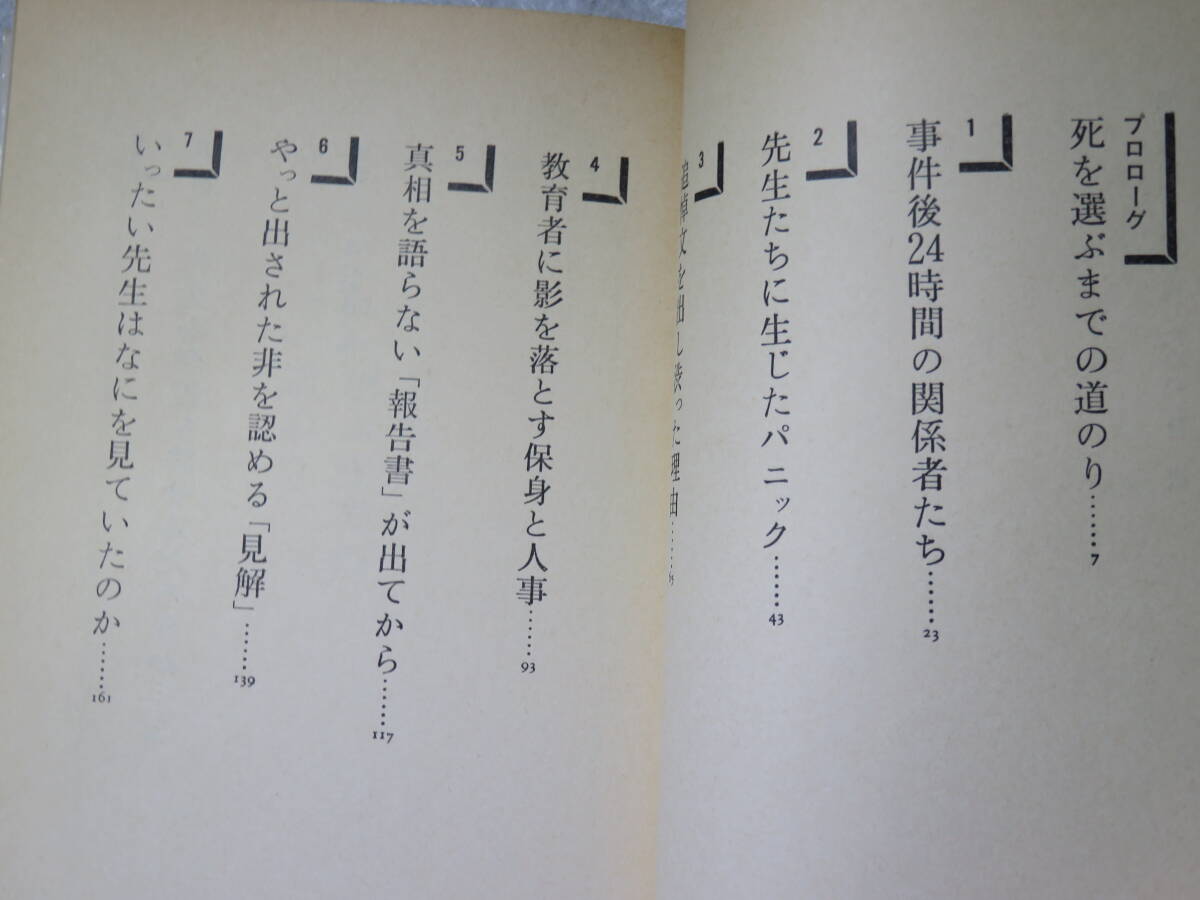 プロローグ
死を選ぶまでの道のり……7
1
事件後24時間の関係者たち……23
2
先生たちに生じたパニック……43
3
追悼文を出し渋った理由……
4
教育者に影を落とす保身と人事……93
5
真相を語らない「報告書」が出てから……117
6
やっと出された非を認める「見解」……139
7
いったい先生はなにを見ていたのか……161